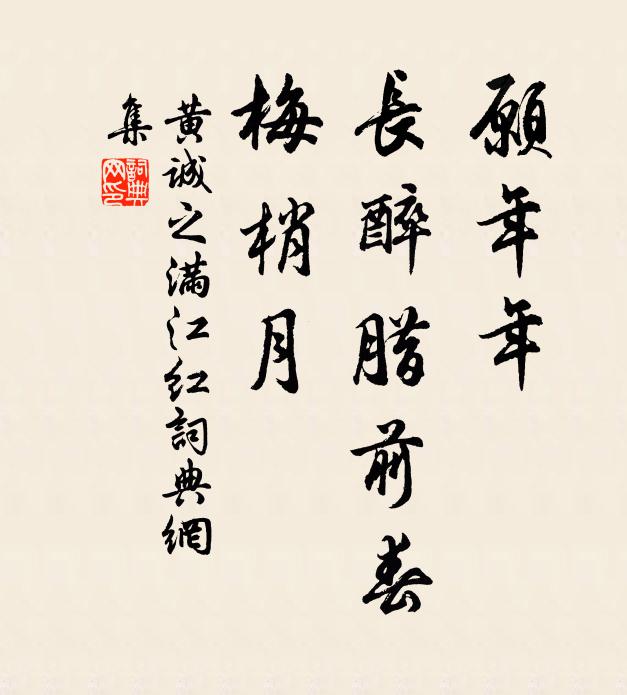 願年年
長醉腊前春
梅梢月
黃誠之滿江红詞典網
集
詞典
网印